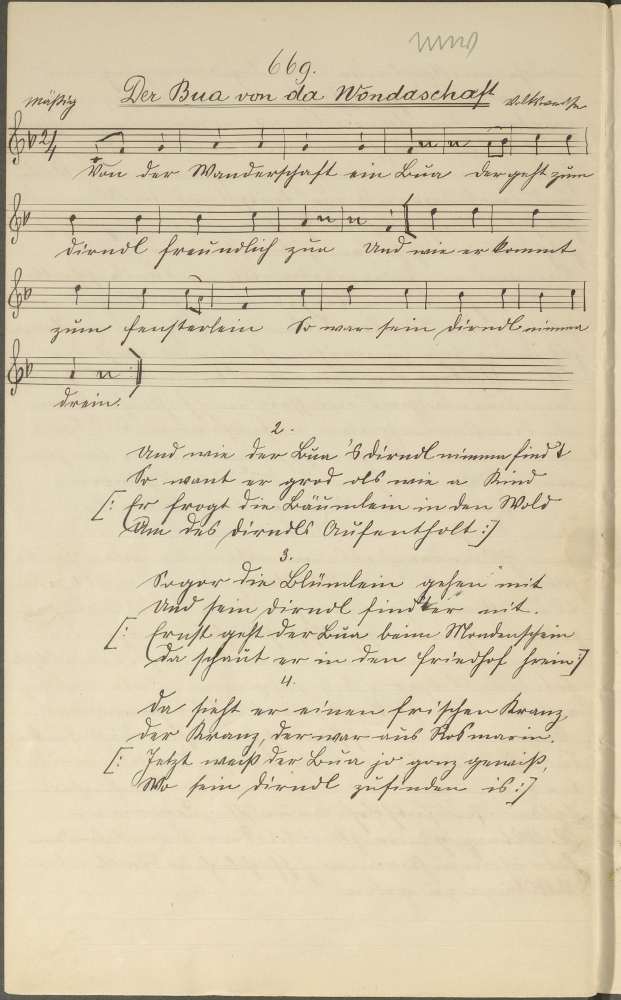 669.
Der Bua von da Wondaschaft
Mäßig
Volksweise
Von der Wanderschaft ein Bua der geht zum
Dirndl freundlich zua Und wie er kommt
zum Fensterlein So war sein Dirndl nimma
drein.
2.
Und wie der Bua 's Dirndl nimma find't
So want er grod als wie a Kind
[: Er frogt die Bäumlein in den Wold
Um des Dirndls Aufentholt :]
3.
Sogar die Blümlein gehen mit
Und sein Dirndl find't er nit.
[: Ernst geht der Bua beim Mondenschein
Da schaut er in den Friedhof hrein :]
4.
Da sieht er einen frischen Kranz,
Der Kranz, der war aus Rosmarin.
[: Jetzt weiß der Bua jo ganz gewiß,
Wo sein Dirndl zufinden is :]